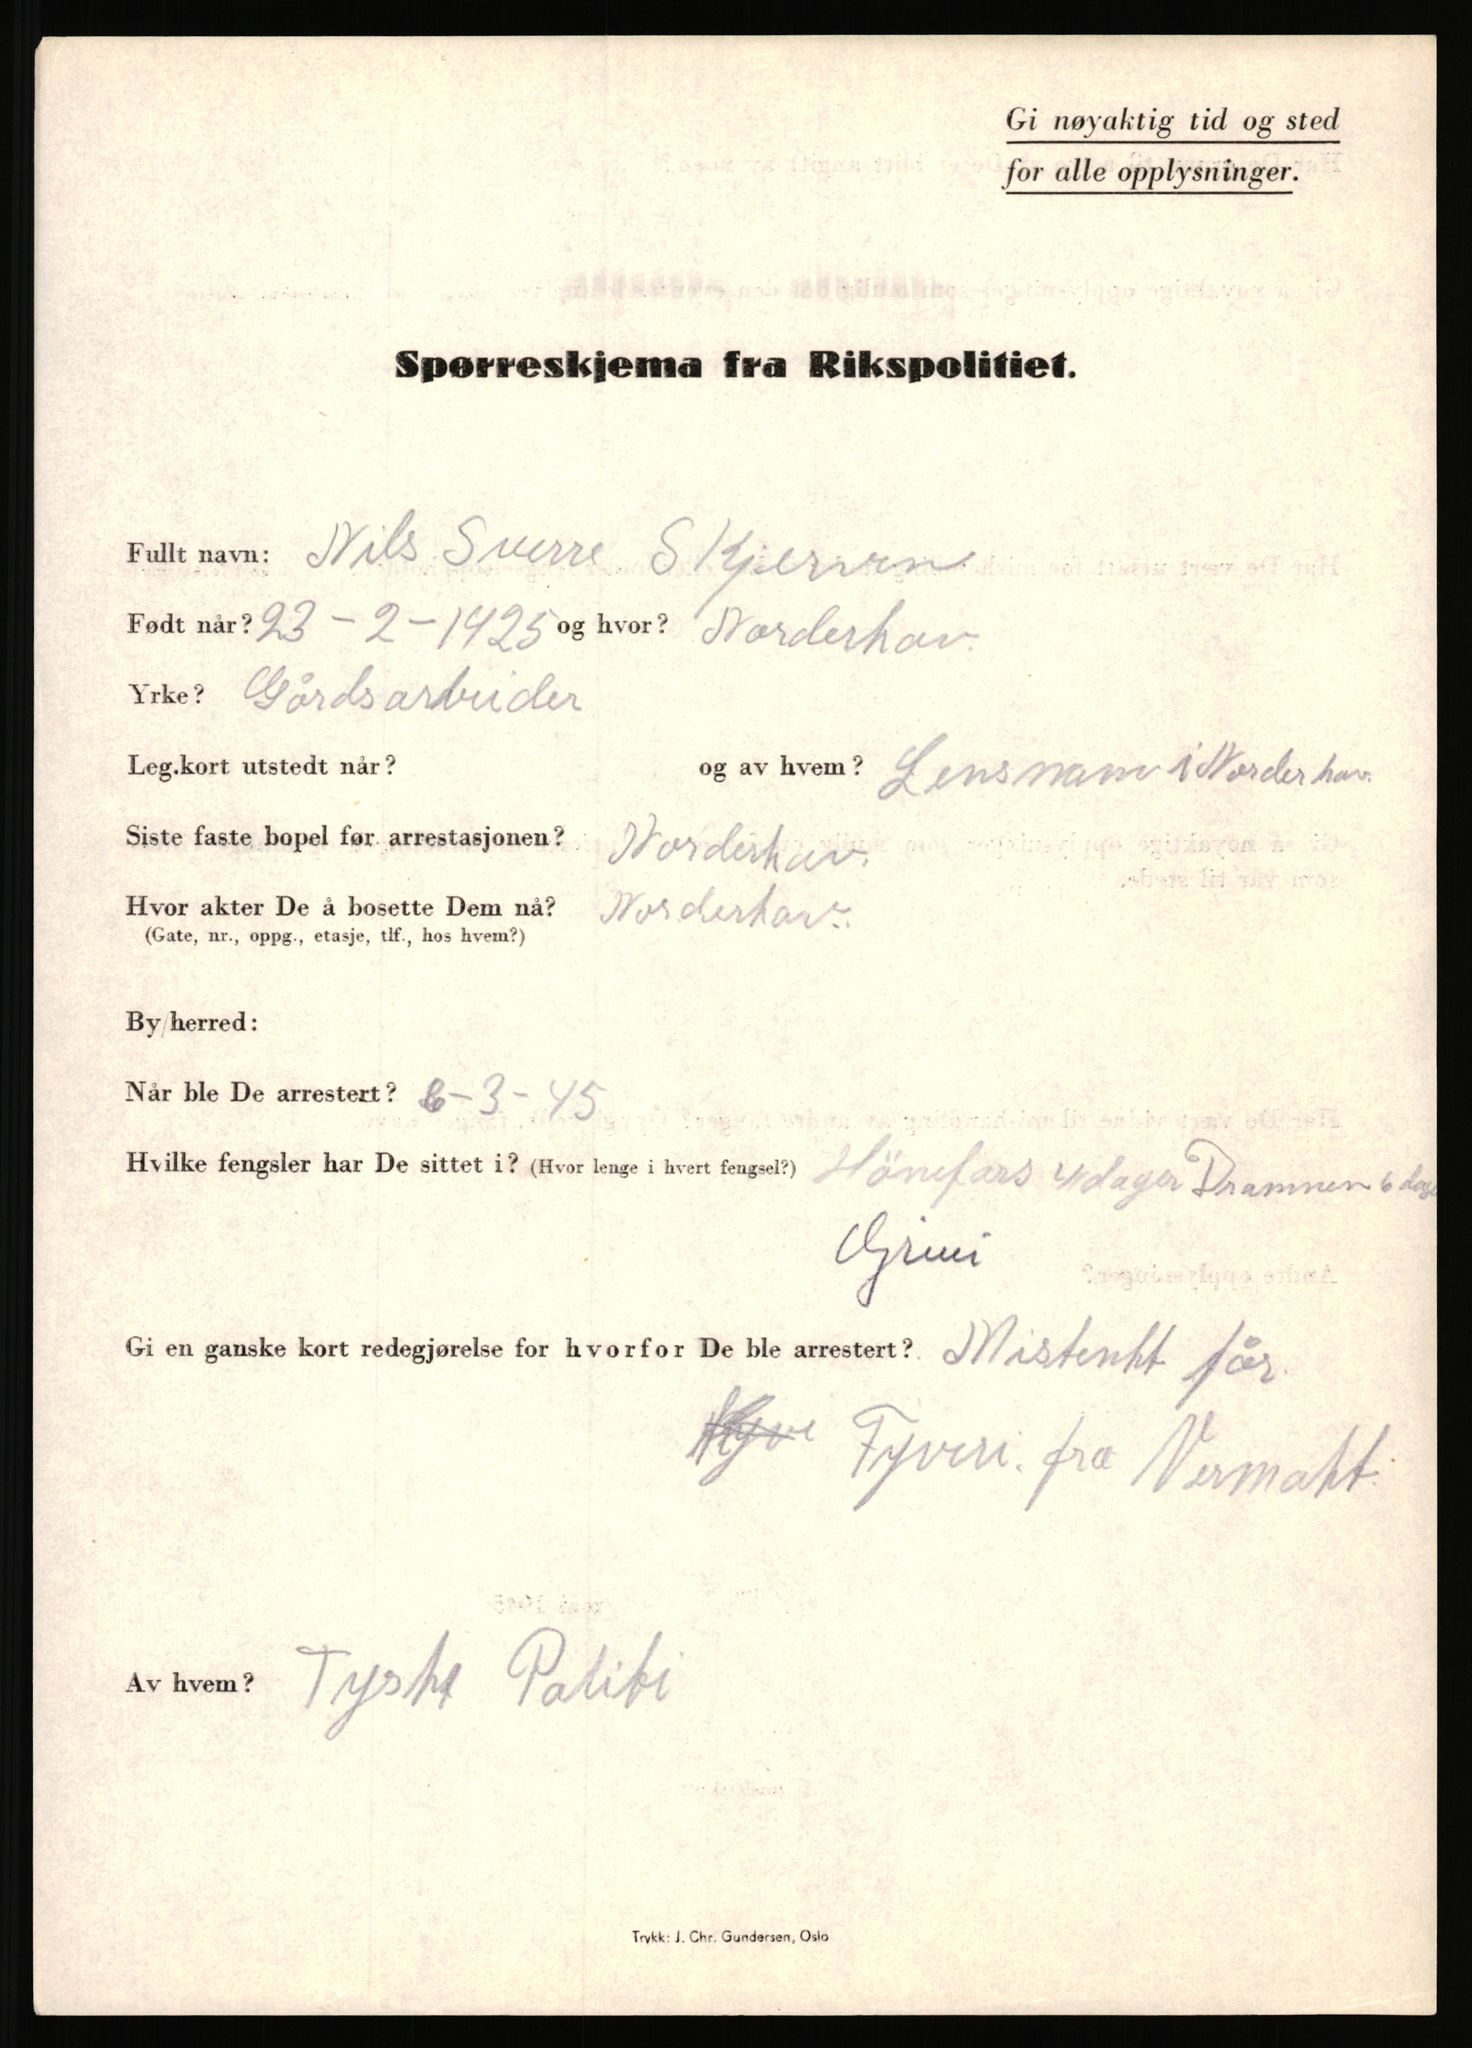 Gi nøyaktig tid og sted
for alle opplysninger.
Spørreskjema fra Rikspolitiet.
Fullt navn: Nils Sverre Skjerven
Født når? 23-2-1925 og hvor? Norderhov.
Yrke? Gårdsarbeider
Leg.kort utstedt når? og av hvem? Lensmann i Norderhov.
Siste faste bopel før arrestasjonen? Norderhov.
Hvor akter De å bosette Dem nå? Norderhov.
(Gate, nr., oppg., etasje, tlf., hos hvem?)
By/herred:
Når ble De arrestert? 6-3-45
Hvilke fengsler har De sittet i? (Hvor lenge i hvert fengsel?) Hönefoss 4 dager Drammen 6 dage
Grini
Gi en ganske kort redegjørelse for hvorfor De ble arrestert? Mistenkt får.
Tyveri. fra Vermakt.
Av hvem? Tyskt Politi
Trykk: J. Chr. Gundersen, Oslo